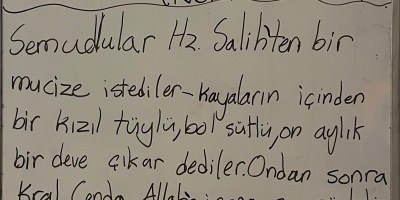 Semudlular Hz. Salihten bir
mucize istediler-kayaların içinden
bir kızıl tüylü, bol sütlü, on aylık
bir deve çıkar dediler. Ondan sonra
Kral Cenda